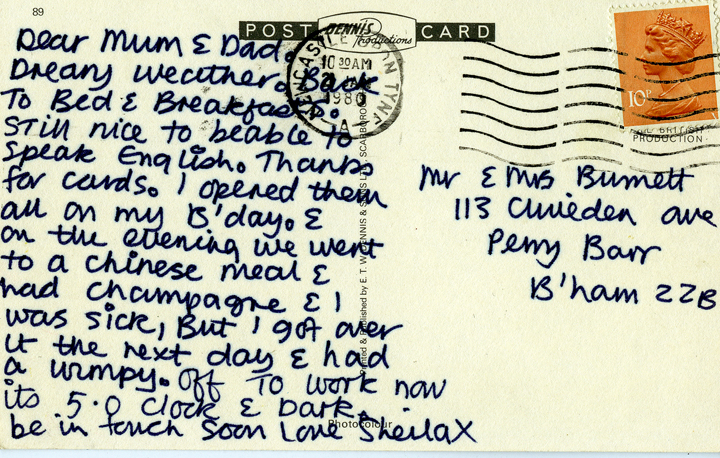 89
POST CARD
DENNIS
Productions
Dear Mum & Dad.
Dreary weather. Back
To Bed & Breakfasts.
Still nice to beable to
Speak English. Thanks
for cards. I opened them
all on my B'day. &
on the evening we went
to a chinese meal &
had champagne & I
was sick, But I got over
it the next day & had
a wimpy. Off To work now
its 5.0 Clock & Dark.
be in touch Soon Love Sheila X
NEWCASTLE UPON TYNE
10 30 AM
1980
A
10P
BRITISH
PRODUCTION
Mr & Mrs Burnett
113 Cliveden ave
Perry Barr
B'ham 22B
Printed & Published by E. T. W. DENNIS & SONS LTD., SCARBORO
Photocolour